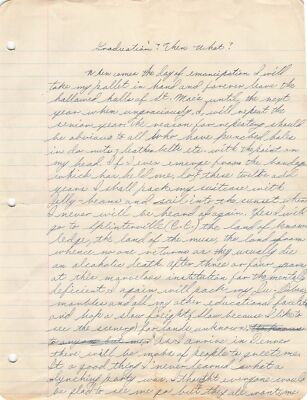 Graduation? Then What?
When comes the day of emancipation I will
take my pallet in hand and forever leave the
hallowed halls of St. Mac's until the next
year when ungraciously, I will repeat the
senior year. The reason for my return should
be obvious to all who have punched holes
in do nuts, leather belts etc. with the point on
my head. If I ever emerge from the bondage
which has held me, lo! these twelve odd
years I shall pack my suitcase with
jelly-beans and sail into the sunset where
I never will be heard of again. Yes I will
go to Splinterville (C.C.) the land of
ledge, the land of the muse, the land from
whence no one returns as they usually die
an alcoholic death. After three or four years
at this marvelous institution for the mentally
deficient I again will pack my
and all my other educational facilities
and hop a slow freight, slow because I like to
see the scenery, for lands unknown.
As I arrive in Denver
there will be mobs of people to greet me.
It a good thing I never learned what a
lynching party was. I thought everyone would
be glad to see me go but they all want me